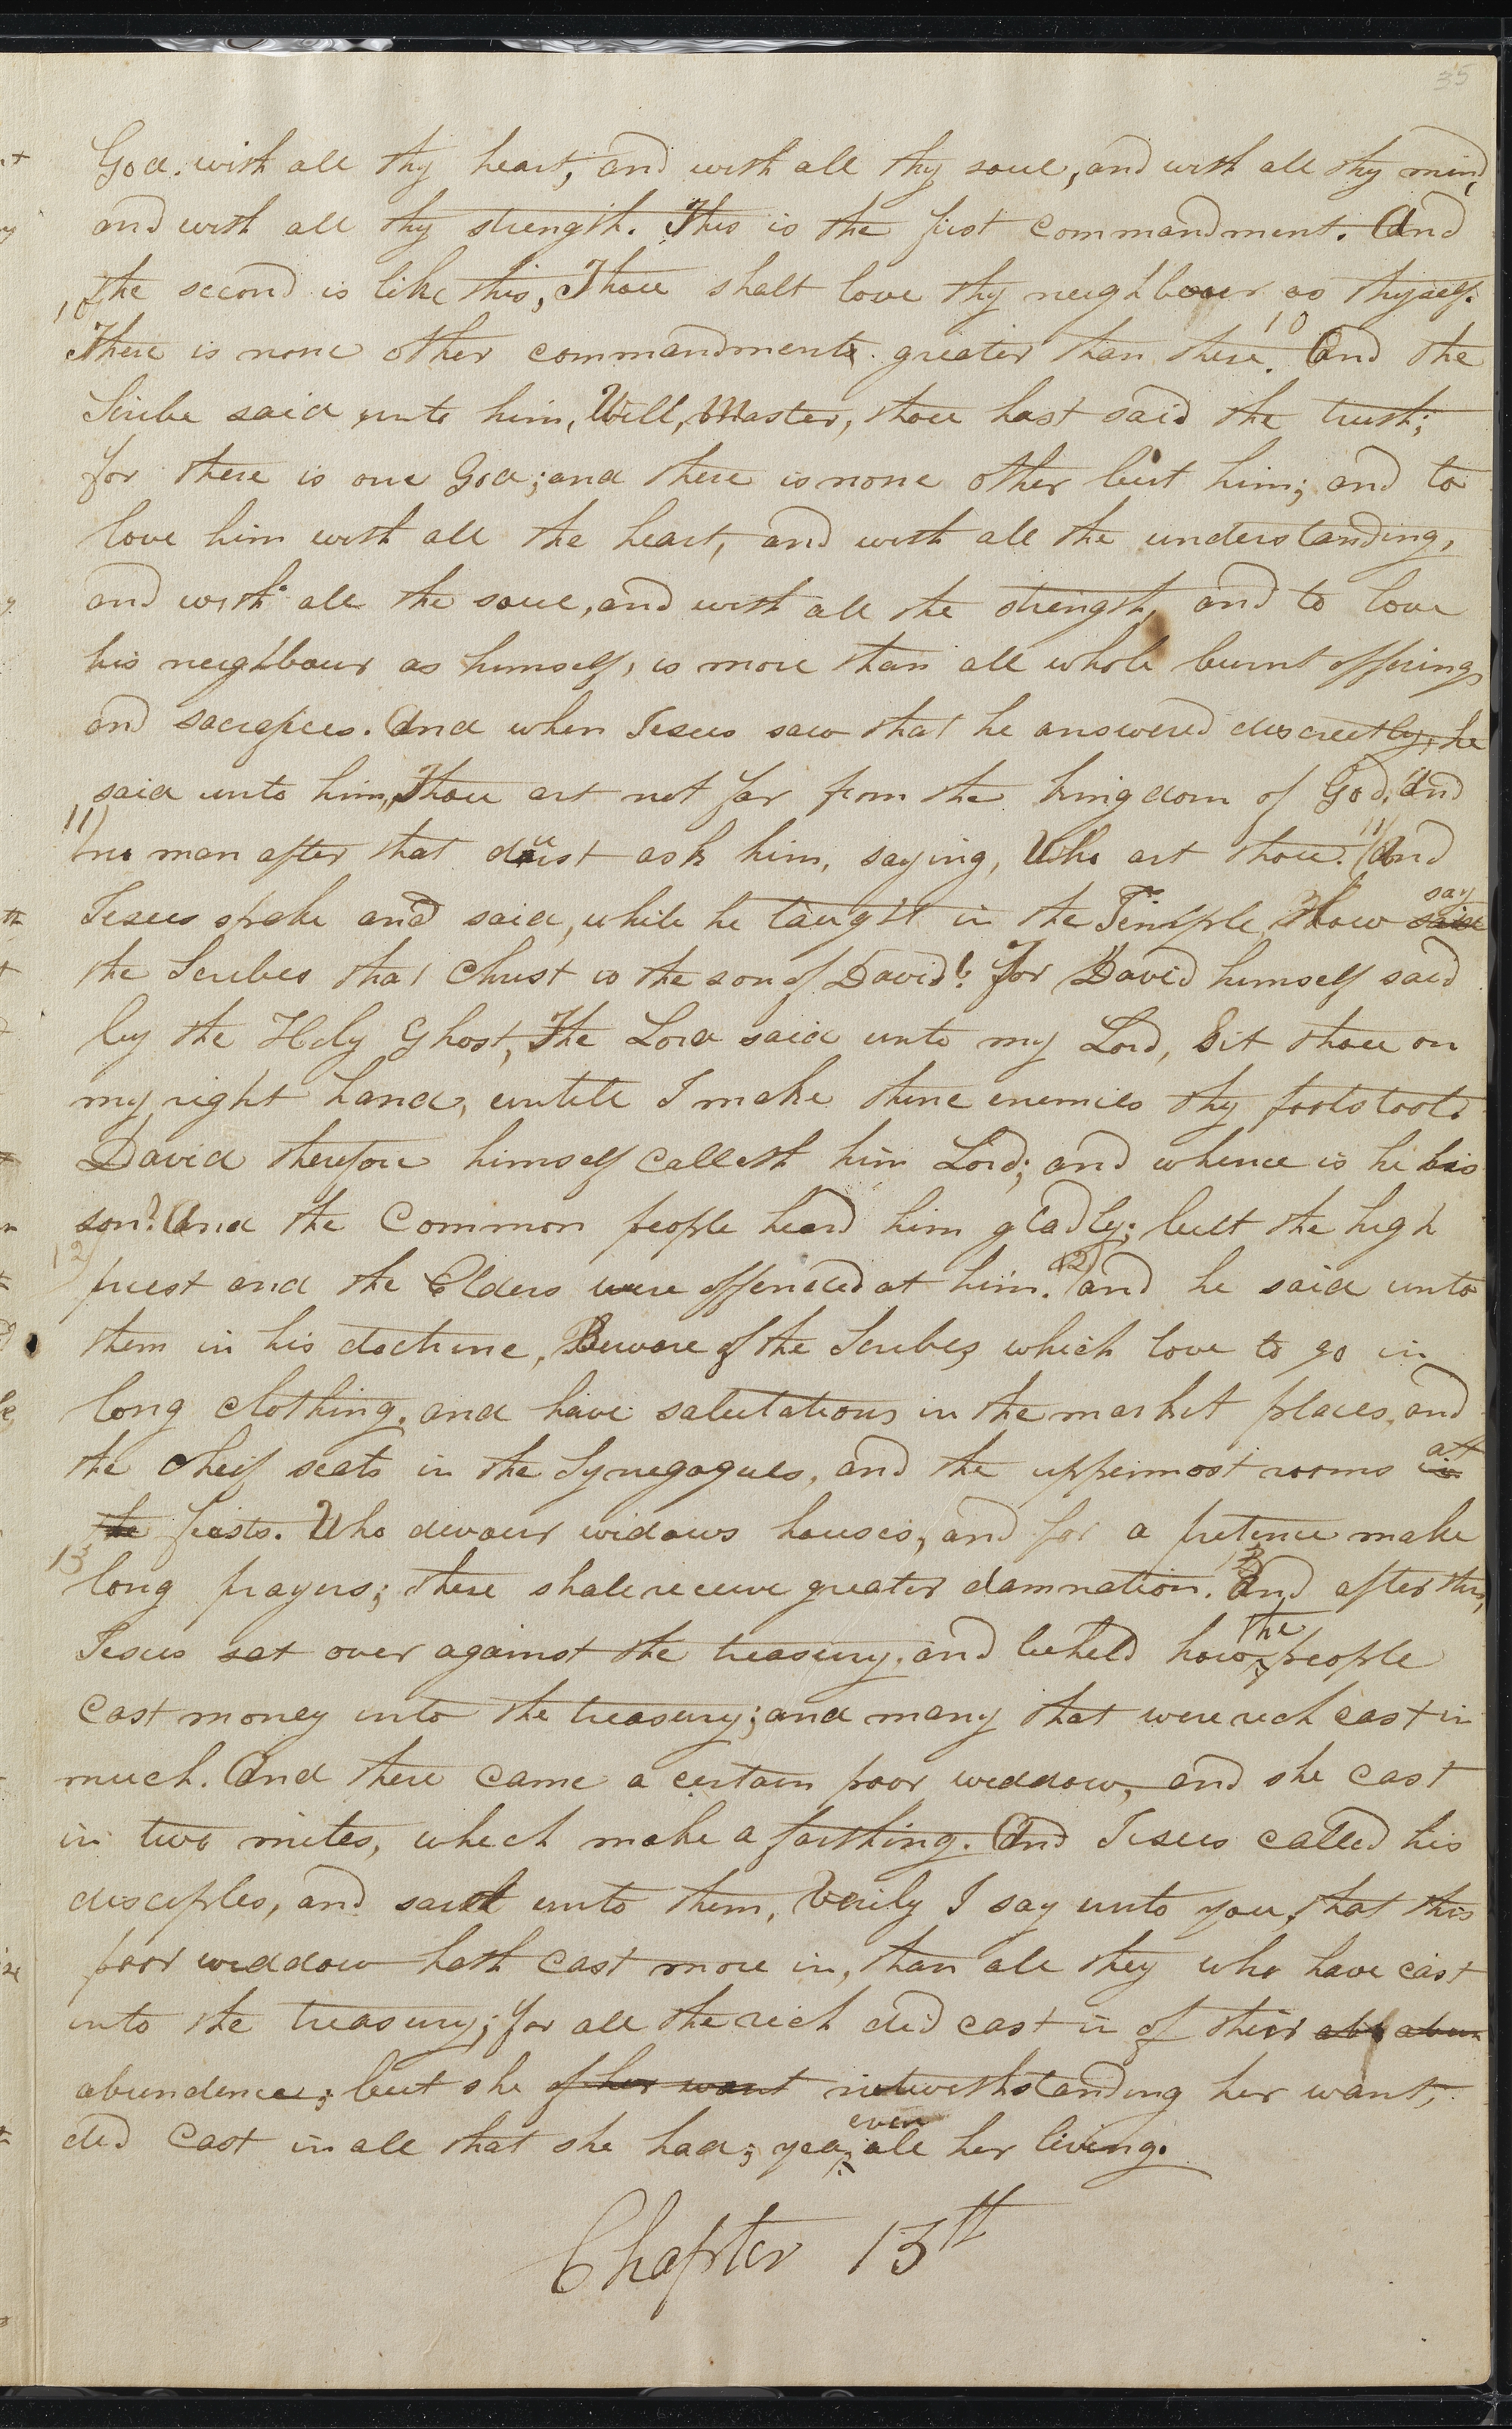 35
God. with all thy heart, and with all thy soul, and with all thy mind,
and with all thy strength. This is the first commandment. And
the second is like this, Thou shalt love thy neighbour as thyself.
There is none other commandments greater than these. 10 And the
Scribe said unto him, Well, Master, thou hast said the truth;
for there is one God; and there is none other but him; and to
love him with all the heart, and with all the understanding,
and with all the soul, and with all the strength, and to love
his neighbour as himself, is more than all whole burnt offerings
and sacrifices. And when Jesus saw that he answered discreetly, he
said unto him, Thou art not far from the kingdom of God. And
11) no man after that durst ask him, saying, Who art thou. 11) And
Jesus spake and said, while he taught in the Temple, How said say
the Scribes that Christ is the son of David? For David himself said
by the Holy Ghost, The Lord said unto my Lord, Sit thou on
my right hand, untill I make thine enemies thy footstool.
David therefore himself calleth him Lord; and whence is he his
son? And the common people heard him gladly; but the high
12) priest and the Elders were offended at him. 12) and he said unto
them in his doctrine, Beware of the Scribes which love to go in
long clothing. and have salutations in the market places, and
the cheif seats in the Synegogues, and the uppermost rooms in at
the feasts. Who devour widows houses, and for a pretence make
13 long prayers; these shall receive greater damnation. 13 And after this,
Jesus sat over against the treasury. and beheld how the people
cast money into the treasury; and many that were rich cast in
much. And there came a certain poor widdow, and she cast
in two mites, which make a farthing. And Jesus called his
disciples, and saith unto them, Verily I say unto you, that this
poor widdow hath cast more in, than all they who have cast
into the treasury; for all the rich did cast in of their abb abun
abundence; but she of her want notwithstanding her want,
did cast in all that she had; yea, even all her living.
Chapter 13th